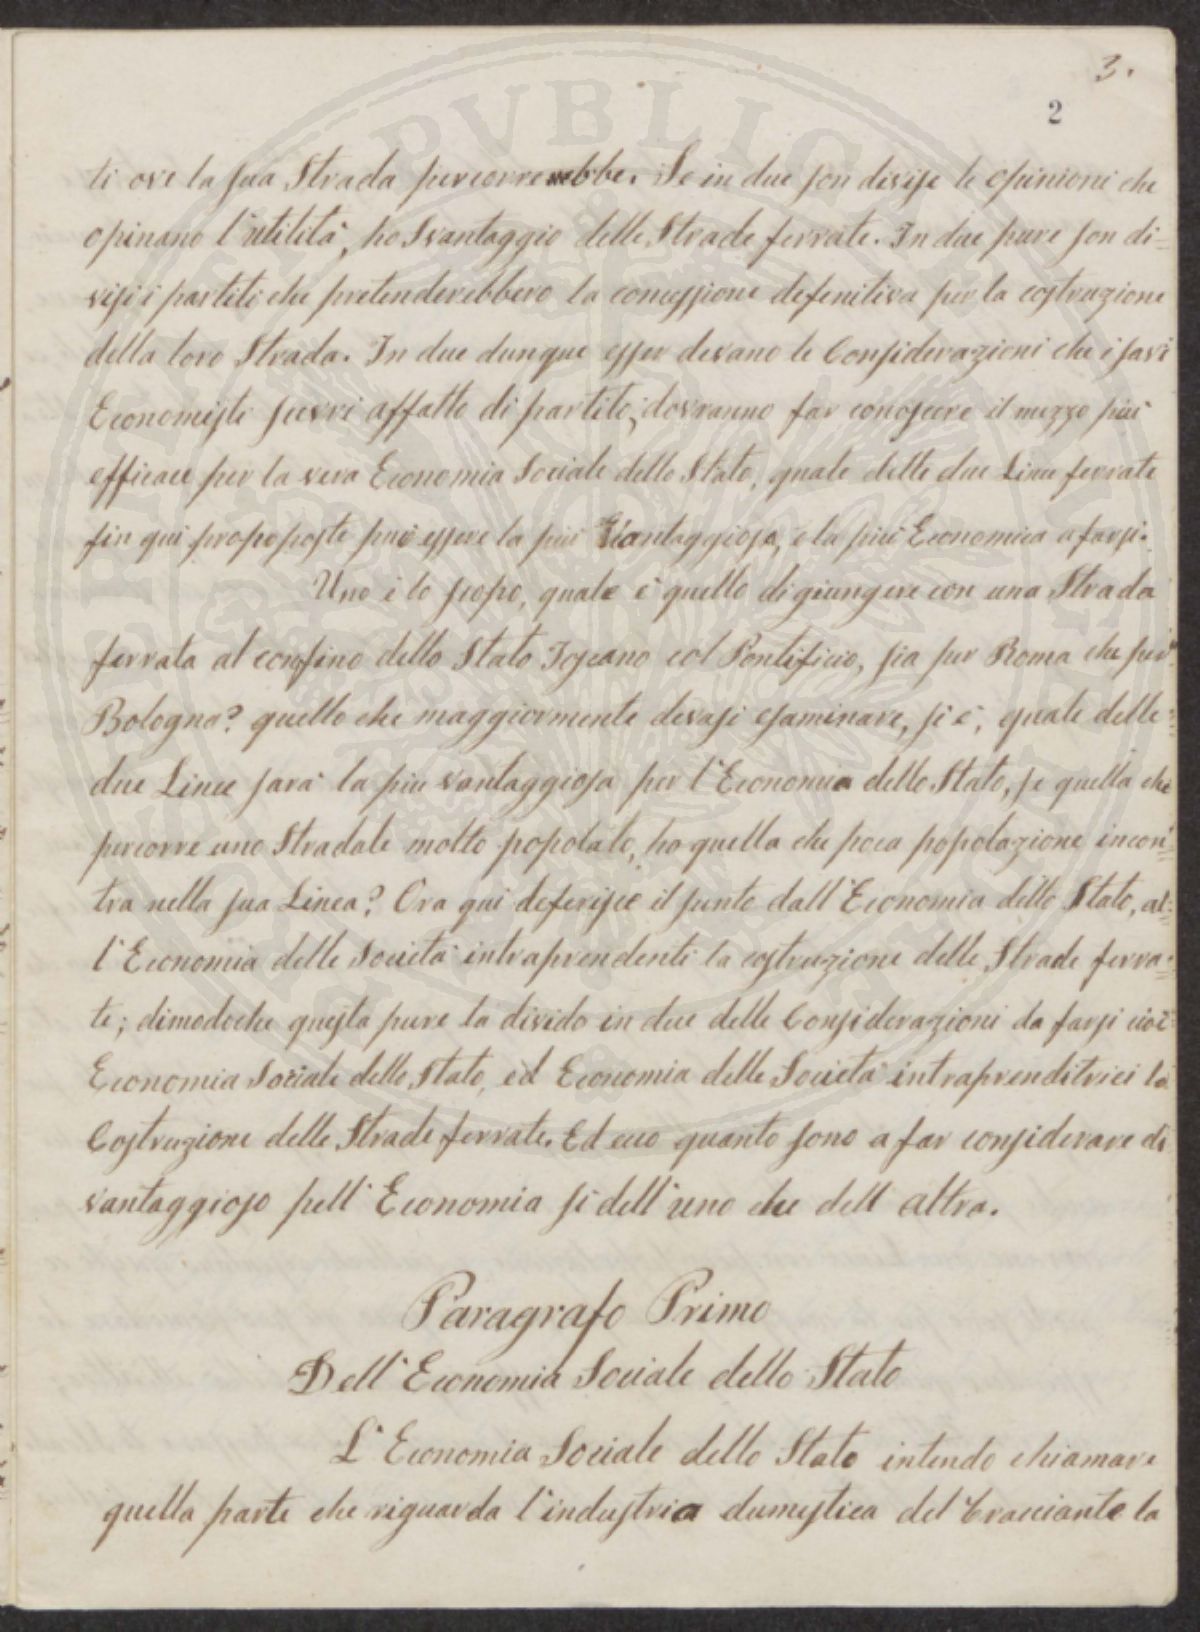 3.
2
ti ove la sua Strada percorrerebbe. Se in due son divise le opinioni che
opinano l'utilità, ho Svantaggio delle Strade ferrate. In due pure son di=
visi i partiti che pretenderebbero la concessione defenitiva per la costruzione
della loro Strada. In due dunque esser devano le Considerazioni che i savi
Economisti scevri affatto di partito, dovranno far conoscere il mezzo più
efficace per la vera Economia Sociale dello Stato, quale delle due Linee ferrate
fin qui propoposte può essere la più Vantaggiosa, e la più Economica a farsi.
Uno è lo scopo, quale è quello di giungere con una Strada
ferrata al confine dello Stato Toscano col Pontificio, sia per Roma che per
Bologna? quello che maggiormente devasi esaminare, si è, quale delle
due Linee sarà la più vantaggiosa per l'Economia dello Stato, se quella che
percorre uno Stradale molto popolato, ho quella che poca popolazione incon=
tra nella sua Linea? Ora qui deferisce il punto dall'Economia dello Stato, al=
l'Economia delle Società intraprendenti la costruzione delle Strade ferra=
te; dimodoche questa pure la divido in due delle Considerazioni da farsi cioè
Economia Sociale dello Stato, ed Economia delle Società intraprenditrici la
Costruzione delle Strade ferrate. Ed ecco quanto sono a far considerare di
vantaggioso pell'Economia si dell'uno che dell altra.
Paragrafo Primo
Dell'Economia Sociale dello Stato
L'Economia Sociale dello Stato intendo chiamare
quella parte che riguarda l'industria dumestica del bracciante la